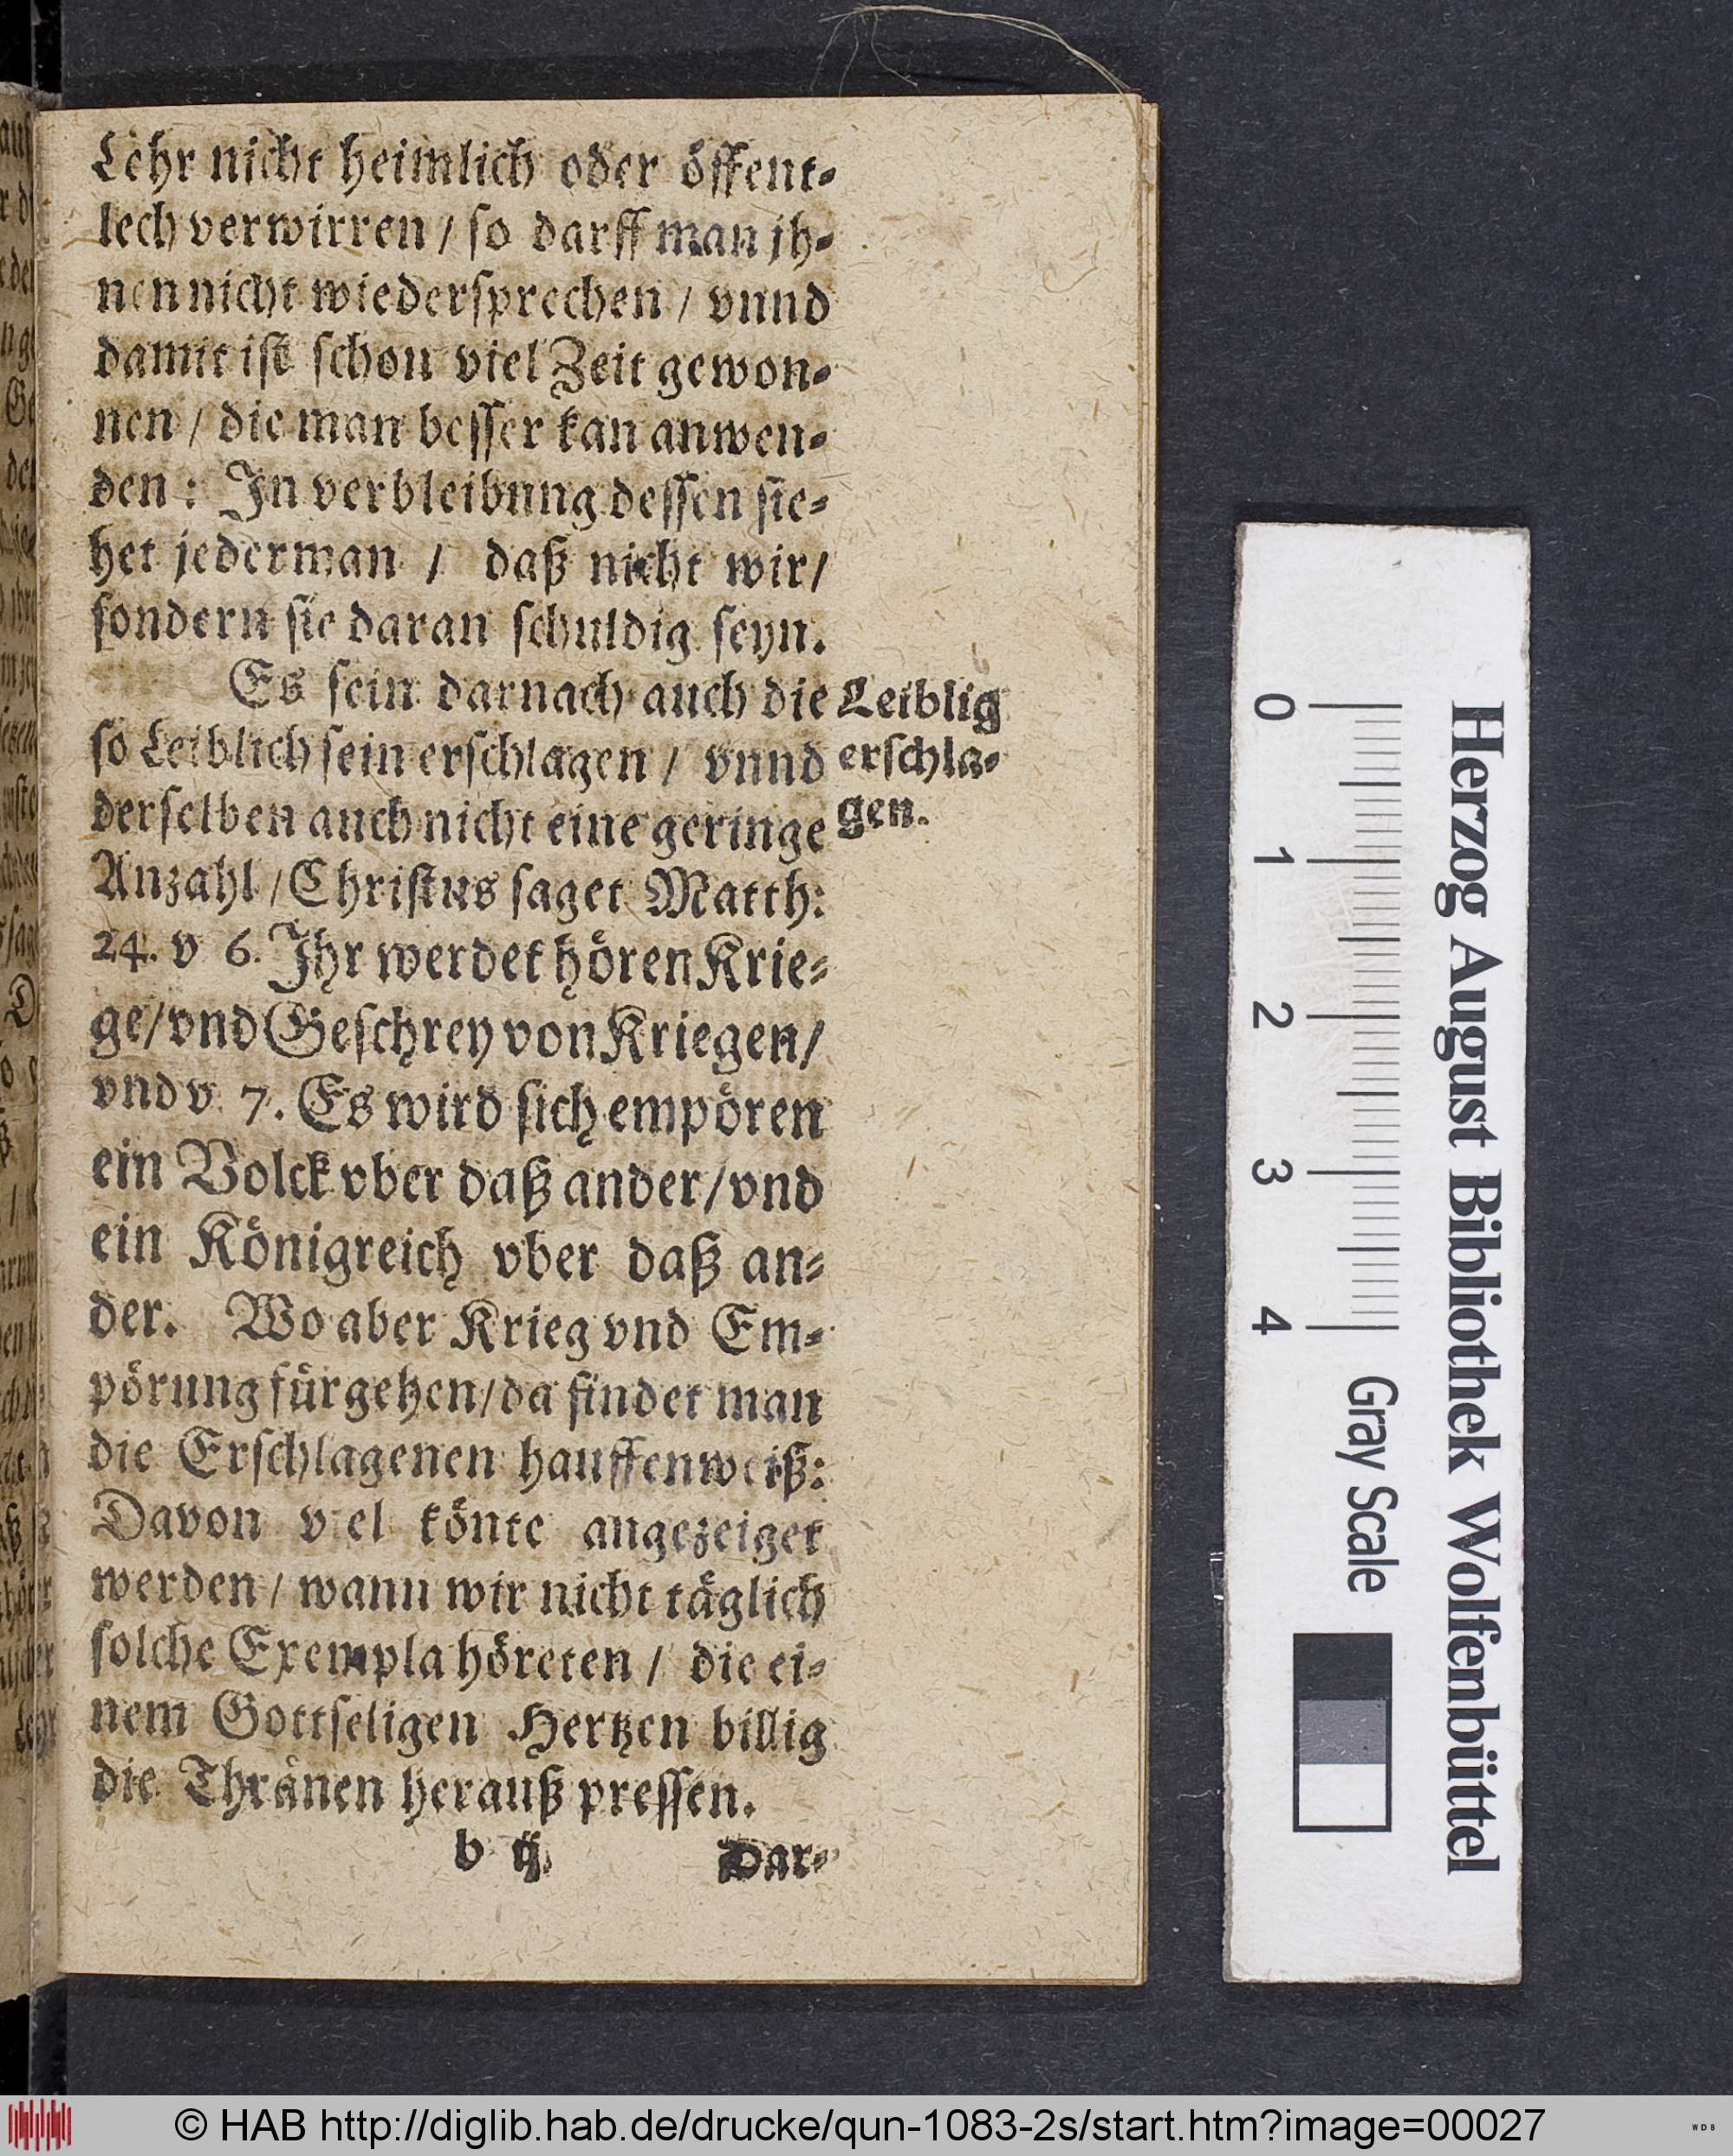 Lehr nicht heimlich oder öffent-
lech verwirren / so darff man jh-
nen nicht wiedersprechen / vnnd
damit ist schon viel Zeit gewon-
nen / die man besser kan anwen-
den : In verbleibung dessen sie-
het jederman / daß nicht wir /
sondern sie daran schuldig seyn.
Es sein darnach auch die
so Leiblich sein erschlagen / vnnd
derselben auch nicht eine geringe
Anzahl / Christus saget Matth:
24. v 6. Ihr werdet hören Krie-
ge / vnd Geschrey von Kriegen /
vnd v. 7. Es wird sich empören
ein Volck vber daß ander / vnd
ein Königreich vber daß an-
der. Wo aber Krieg vnd Em-
pörung fürgehen / da findet man
die Erschlagenen hauffenweiß:
Davon viel könte angezeiget
werden / wann wir nicht täglich
solche Exempla höreten / die ei-
nem Gottseligen Hertzen billig
die Thränen herauß pressen.
b ij
Dar-
Leiblig
erschla-
gen.
Herzog August Bibliothek Wolfenbüttel
0 1 2 3 4 Gray Scale
© HAB http://diglib.hab.de/drucke/qun-1083-2s/start.htm?image=00027
WDB